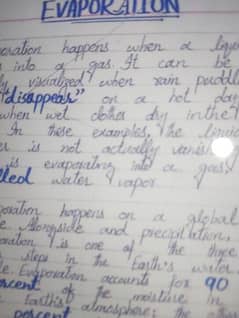 EVAPORATION
oration happens when a liqu
into a gas. It can be
ly visualized when rain puddl
"disappear" on a hot day
when wet clothes dry in the
In these examples, the liquid
er is not actually vanis
is evaporating into a gas,
lled water vapor.
poration happens on a global
e. Alongside and precipitation,
oration is one of the three
steps in the Earth's water
le. Evaporation accounts for 90
ercent of the moisture in
Earth's atmosphere; the
percent